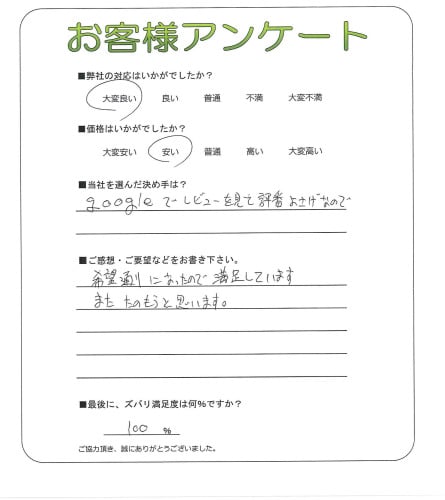 お客様アンケート
■弊社の対応はいかがでしたか？
大変良い 良い 普通 不満 大変不満
■価格はいかがでしたか？
大変安い 安い 普通 高い 大変高い
■当社を選んだ決め手は？
googleでレビューを見て評番よさげなので
■ご感想・ご要望などをお書き下さい。
希望通りになったので満足しています
またたのもうと思います。
■最後に、ズバリ満足度は何％ですか？
100 %
ご協力頂き、誠にありがとうございました。